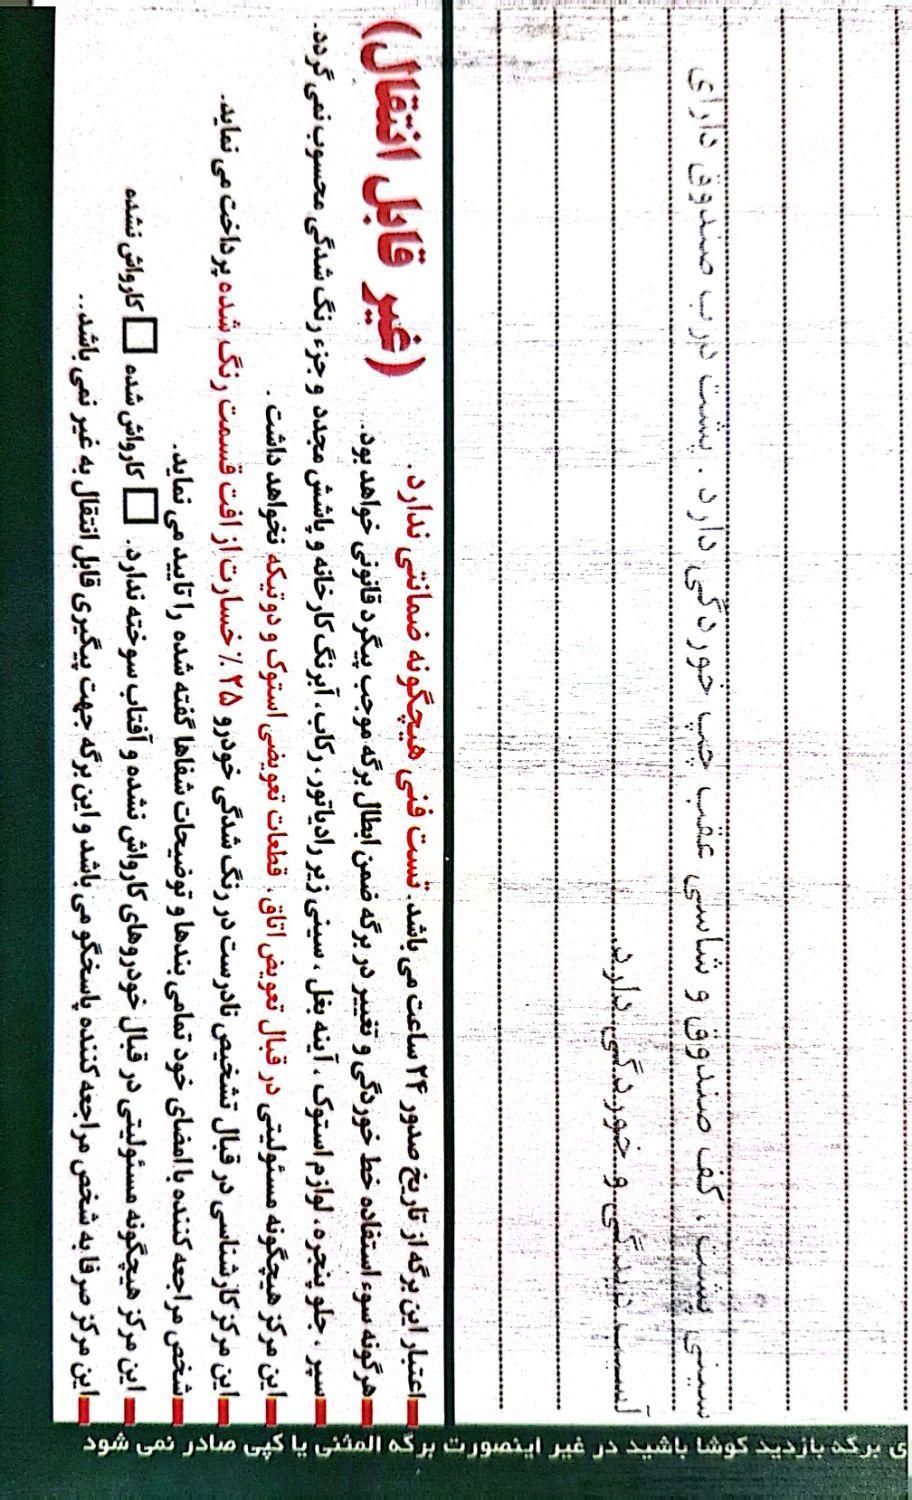 سینی پشت، کف صندوق و شاسی عقب چپ خوردگی دارد. پشت درب صندوق دارای
آسیب دیدگی و خوردگی دارد
(غیر قابل انتقال)
اعتبار این برگه از تاریخ صدور ۲۴ ساعت می باشد. تست فنی هیچگونه ضمانتی ندارد.
هرگونه سوء استفاده خط خوردگی و تغییر در برگه ضمن ابطال برگه موجب پیگرد قانونی خواهد بود.
سپر، جلو پنجره، لوازم استوک، آینه بغل، سینی زیر رادیاتور، رکاب، آبرنگ کارخانه و پاشش مجدد و جزء رنگ شدگی محسوب نمی گردد.
این مرکز هیچگونه مسئولیتی در قبال تعویض اتاق، قطعات تعویضی استوک و دوتیکه نخواهد داشت.
این مرکز کارشناسی در قبال تشخیص نادرست در رنگ شدگی خودرو ۲۵٪ خسارت از افت قسمت رنگ شده پرداخت می نماید.
شخص مراجعه کننده با امضای خود تمامی بندها و توضیحات شفاها گفته شده را تایید می نماید.
این مرکز هیچگونه مسئولیتی در قبال خودروهای کارواش نشده و آفتاب سوخته ندارد. □ کارواش شده □ کارواش نشده
این مرکز صرفا به شخص مراجعه کننده پاسخگو می باشد و این برگه جهت پیگیری قابل انتقال به غیر نمی باشد..
ی برگه بازدید کوشا باشید در غیر اینصورت برگه المثنی یا کپی صادر نمی شود